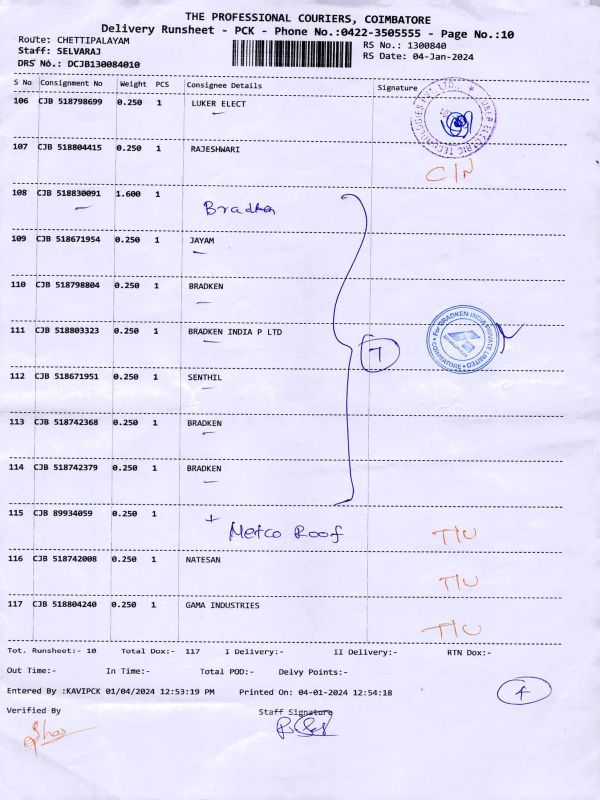 THE PROFESSIONAL COURIERS, COIMBATORE
Delivery Runsheet - PCK - Phone No.:0422-3505555 - Page No.:10
Route: CHETTIPALAYAM
RS No.: 1300840
Staff: SELVARAJ
RS Date: 04-Jan-2024
DRS No.: DCJB130084010
S No Consignment No Weight PCS Consignee Details Signature
106 CJB 518798699 0.250 1 LUKER ELECT
107 CJB 518804415 0.250 1 RAJESHWARI
C/N
108 CJB 518830091 1.600 1 Bradken
109 CJB 518671954 0.250 1 JAYAM
110 CJB 518798804 0.250 1 BRADKEN
111 CJB 518803323 0.250 1 BRADKEN INDIA P LTD
For BRADKEN INDIA PRIVATE LIMITED
COIMBATORE
7
112 CJB 518671951 0.250 1 SENTHIL
113 CJB 518742368 0.250 1 BRADKEN
114 CJB 518742379 0.250 1 BRADKEN
115 CJB 89934059 0.250 1 + Metco Roof T/U
116 CJB 518742008 0.250 1 NATESAN T/U
117 CJB 518804240 0.250 1 GAMA INDUSTRIES T/U
Tot. Runsheet:- 10 Total Dox:- 117 I Delivery:- II Delivery:- RTN Dox:-
Out Time:- In Time:- Total POD:- Delvy Points:-
Entered By :KAVIPCK 01/04/2024 12:53:19 PM Printed On: 04-01-2024 12:54:18
Verified By Staff Signature